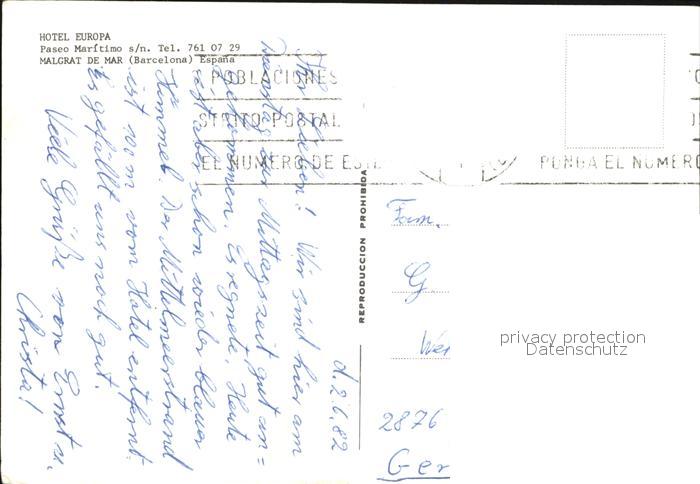 HOTEL EUROPA
Paseo Marítimo s/n. Tel. 761 07 29
MALGRAT DE MAR (Barcelona) España
POBLACIONES
STRITO POSTAL
EL NUMERO DE ES
PONGA EL NUMERO
REPRODUCCION PROHIBIDA
d. 2.6.82
Ihr Lieben! Wir sind hier am
zur Mittagszeit gut an=
gekommen. Es regnete. Heute
ist aber schon wieder blauer
Himmel. Der Mittelmeerstrand
ist 100 m vom Hotel entfernt.
Es gefällt uns noch gut.
Viele Grüße von Ernst u.
Christa!
Fam.
G
We
2876
Ger
privacy protection
Datenschutz